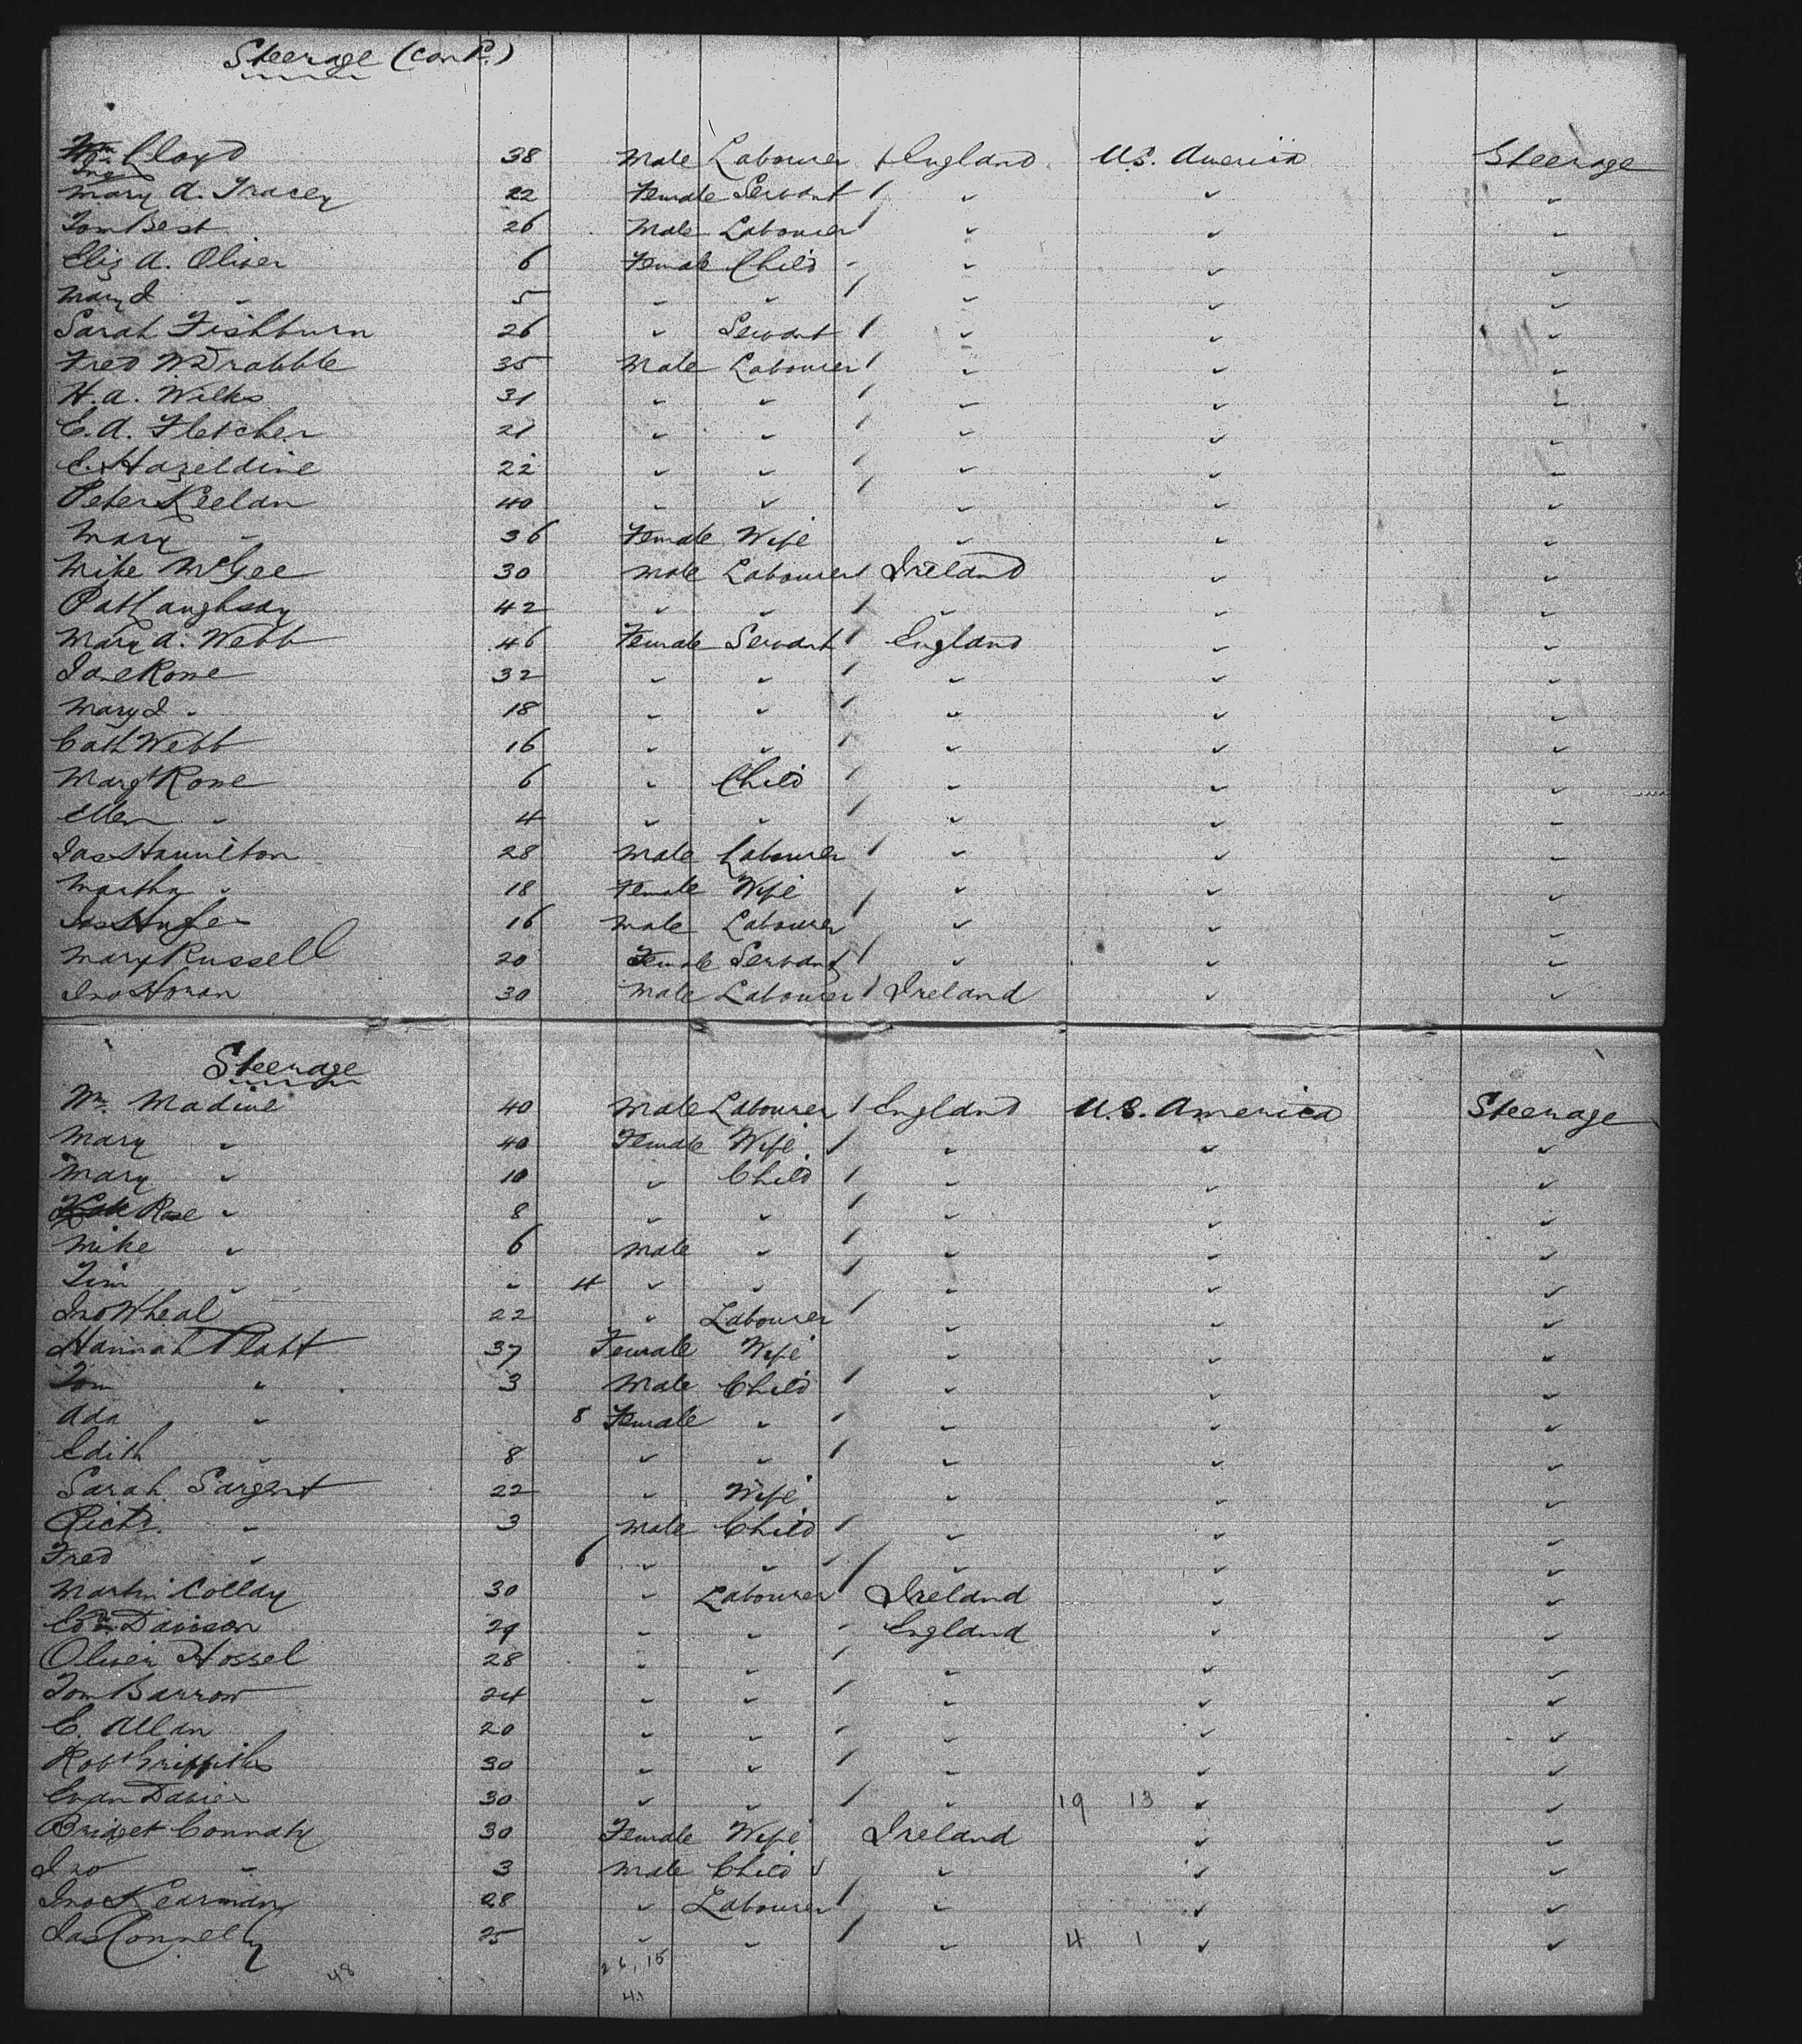 Steerage (cont.)
Lloyd 38 Male Labourer England U.S. America Steerage
Mary A. Tracey 22 Female Servant / ✓ ✓ ✓
Tom Best 26 Male Labourer / ✓ ✓ ✓
Eliz A. Oliver 6 Female Child - ✓ ✓ ✓
Mary J ✓ 5 ✓ ✓ / ✓ ✓ ✓
Sarah Fishburn 26 ✓ Servant / ✓ ✓ ✓
Fred W. Drabble 35 Male Labourer / ✓ ✓ ✓
H. A. Wilks 31 ✓ ✓ / ✓ ✓ ✓
E. A. Fletcher 21 ✓ ✓ / ✓ ✓ ✓
E. Hazeldine 22 ✓ ✓ / ✓ ✓ ✓
Peter Keelan 40 ✓ ✓ / ✓ ✓ ✓
Mary ✓ 36 Female Wife ✓ ✓ ✓
Mike McGee 30 Male Labourer / Ireland ✓ ✓
Pat 42 ✓ ✓ / ✓ ✓ ✓
Mary A. Webb 46 Female Servant / England ✓ ✓
Jane Rowe 32 ✓ ✓ / ✓ ✓ ✓
Mary J ✓ 18 ✓ ✓ / ✓ ✓ ✓
Cath Webb 16 ✓ ✓ / ✓ ✓ ✓
Margt Rowe 6 ✓ Child / ✓ ✓ ✓
Ellen ✓ 4 ✓ ✓ / ✓ ✓ ✓
Jas Hamilton 28 Male Labourer / ✓ ✓ ✓
Martha ✓ 18 Female Wife / ✓ ✓ ✓
Jas 16 Male Labourer / ✓ ✓ ✓
Mary Russell 20 Female Servant / ✓ ✓ ✓
Jno Horan 30 Male Labourer / Ireland ✓ ✓
Steerage
Wm. Madine 40 Male Labourer / England U.S. America Steerage
Mary ✓ 40 Female Wife / ✓ ✓ ✓
Mary ✓ 10 ✓ Child / ✓ ✓ ✓
Rose ✓ 8 ✓ ✓ / ✓ ✓ ✓
Mike ✓ 6 Male ✓ / ✓ ✓ ✓
Tim ✓ ✓ 4 ✓ ✓ / ✓ ✓ ✓
Jno Wheal 22 ✓ Labourer / ✓ ✓ ✓
Hannah Platt 37 Female Wife ✓ ✓ ✓
Tom ✓ 3 Male Child / ✓ ✓ ✓
Ada ✓ 8 Female ✓ / ✓ ✓ ✓
Edith ✓ 8 ✓ ✓ / ✓ ✓ ✓
Sarah Sargent 22 ✓ Wife ✓ ✓ ✓
Richd. ✓ 3 Male Child / ✓ ✓ ✓
Fred ✓ 6 ✓ ✓ / ✓ ✓ ✓
Martin Collay 30 ✓ Labourer / Ireland ✓ ✓
Davison 29 ✓ ✓ - England ✓ ✓
Oliver Hossel 28 ✓ ✓ / ✓ ✓ ✓
Tom Barrow 24 ✓ ✓ / ✓ ✓ ✓
E. Allan 20 ✓ ✓ / ✓ ✓ ✓
Robt Griffiths 30 ✓ ✓ / ✓ ✓ ✓
Evan Davies 30 ✓ ✓ / ✓ 19 13 ✓ ✓
Bridget Connaty 30 Female Wife Ireland ✓ ✓
Jno ✓ 3 Male Child ✓ ✓ ✓ ✓
Jno Kearman 28 ✓ Labourer / ✓ ✓ ✓
Jas Connelly 25 ✓ ✓ / ✓ 4 1 ✓ ✓
48 26, 15
41